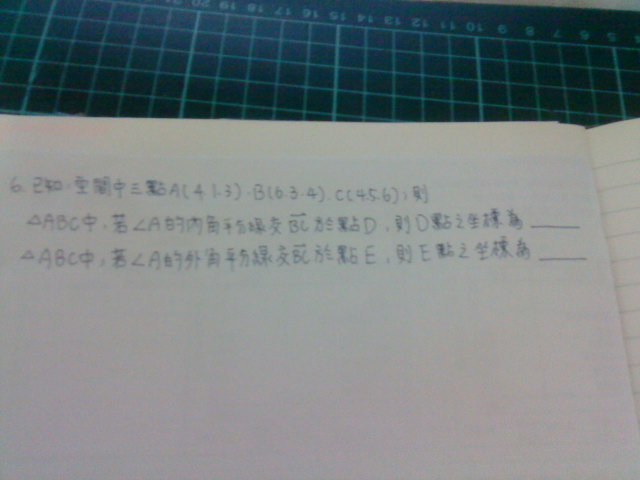 20 19 18 17 16 15 14 13 12 11 10 9 8 7 6 5
6. 已知空間中三點A(4.1.3).B(6.3.4).C(4.5.6);則
△ABC中,若∠A的內角平分線交BC於點D,則D點之坐標為______
△ABC中,若∠A的外角平分線交BC於點E,則E點之坐標為______